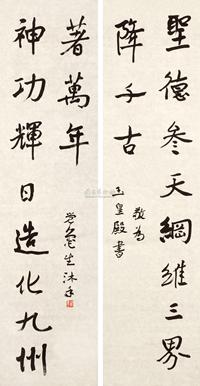 聖德參天綱維三界
隆千古
敬為
玉皇殿書
神功輝日造化九州
著萬年
生沐手